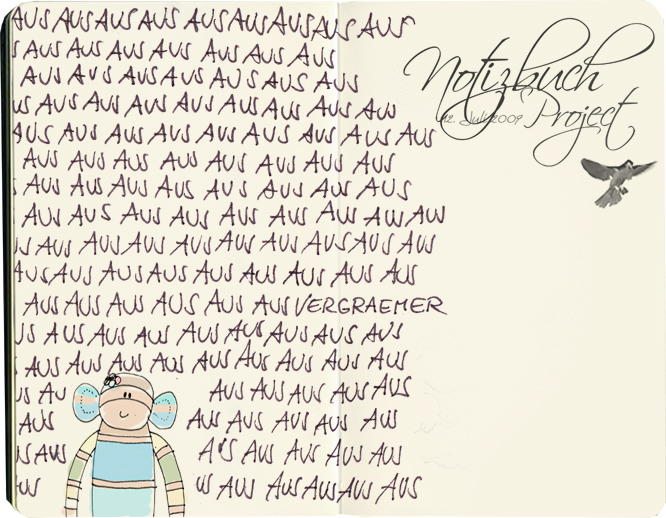 AUS AUS AUS AUS AUS AUS AUS AUS AUS
US AUS AUS AUS AUS AUS AUS AUS
AUS AUS AUS AUS AUS AUS AUS
US AUS AUS AUS AUS AUS AUS AUS AUS
AUS AUS AUS AUS AUS AUS AUS AUS AUS
AUS AUS AUS AUS AUS AUS AUS AUS
AUS AUS AUS AUS AUS AUS AUS AUS
AUS AUS AUS AUS AUS AUS AUS AUS AUS
US AUS AUS AUS AUS AUS AUS AUS AUS
AUS AUS AUS AUS AUS AUS AUS AUS AUS
AUS AUS AUS AUS AUS AUS VERGRAEMER
US AUS AUS AUS AUS AUS AUS AUS AUS
AUS AUS AUS AUS AUS AUS AUS AUS AUS
US AU AUS AUS AUS AUS AUS
AUS AUS AUS AUS AUS AUS
US AUS AUS AUS AUS AUS AUS
US US AUS AUS AUS AUS AUS
Notizbuch
12. Juli 2009
Project